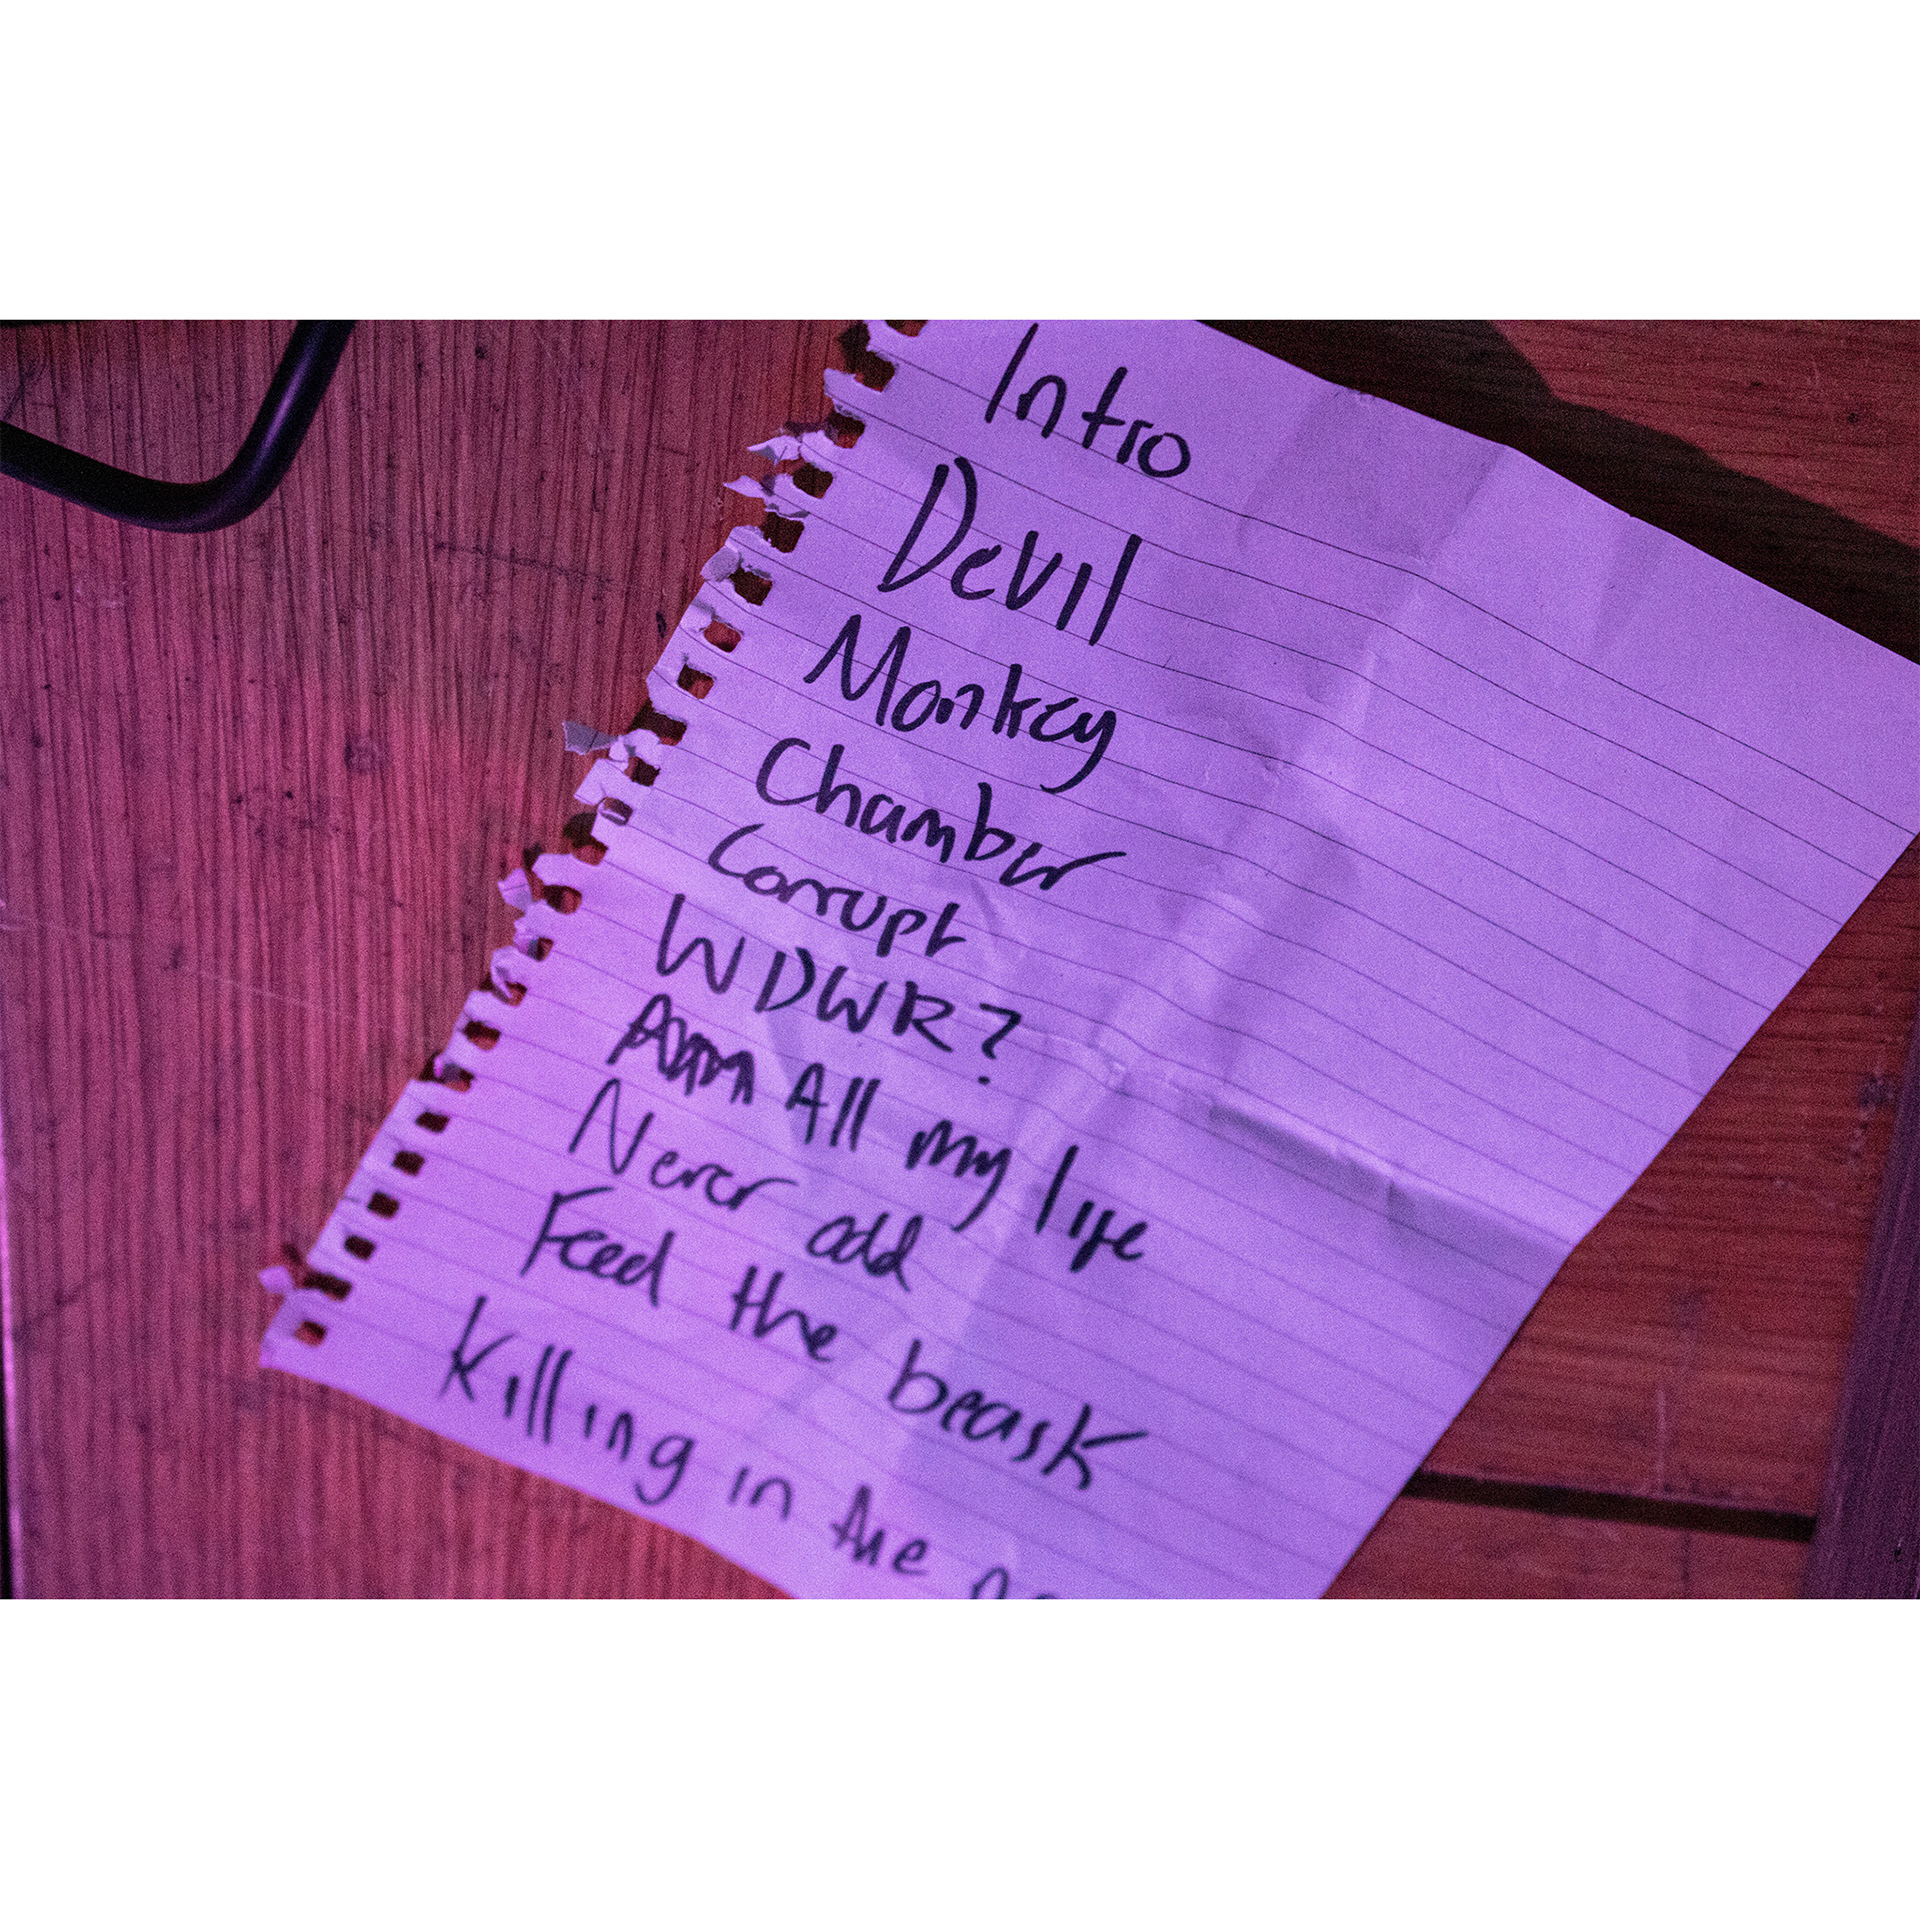 Intro
Devil
Monkey
Chamber
Corrupt
WDWR?
All my life
Never odd
Feed the beast
Killing in the